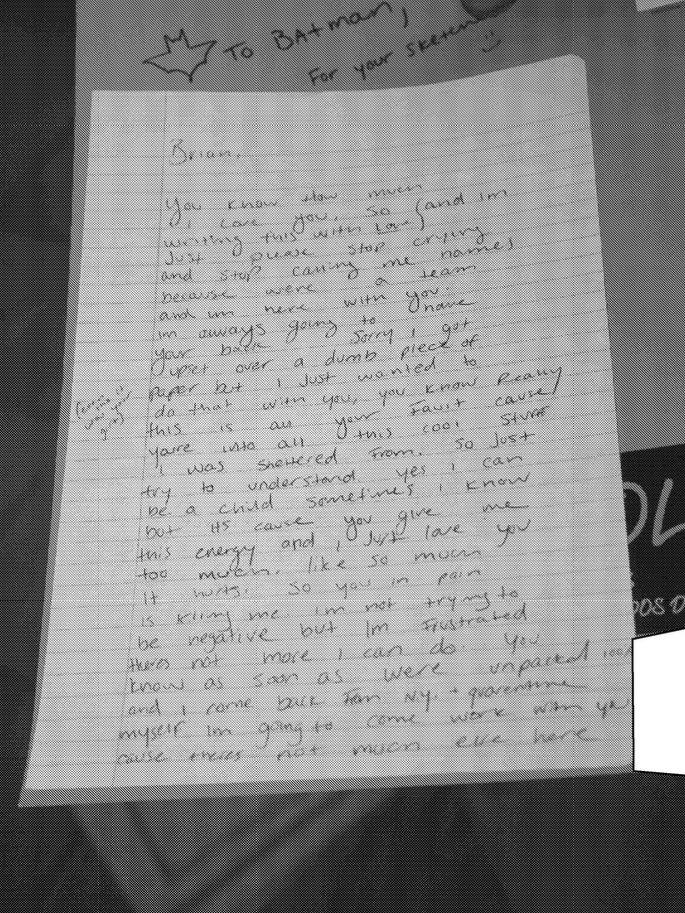 To BAtman,
For your sketch
Brian,
You know How much
I Love you, so (and im
writing this with Love)
Just please stop crying
and stop calling me names
because were a team
and im here with you.
im always going to have
your back. Sorry i got
upset over a dumb piece of
paper but i Just wanted to
do that with you, you know Really
this is all your Fault cause
youre into all this cool stuff
i was sheltered from. So Just
try to understand yes i can
be a child sometimes i know
but its cause you give me
this energy and i Just love you
too much. like so much
it hurts. So you in pain
is killing me. im not trying to
be negative but Im Frustrated
theres not more i can do. You
know as soon as were unpacked 100%
and i come back from N.Y. + quarentine
myself im going to come work with you
cause theres not much else here
OL
OOS D